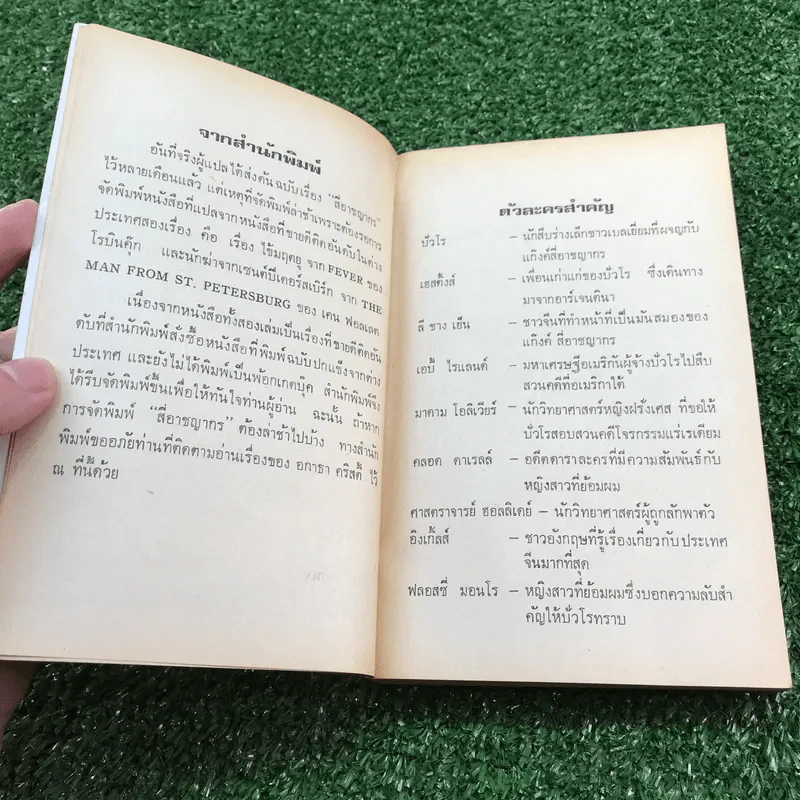 จากสำนักพิมพ์
อันที่จริงผู้แปลได้ส่งต้นฉบับเรื่อง “สี่อาชญากร”
ไว้หลายเดือนแล้ว แต่เหตุที่จัดพิมพ์ล่าช้าเพราะต้องรอการ
จัดพิมพ์หนังสือที่แปลจากหนังสือที่ขายดีติดอันดับในต่าง
ประเทศสองเรื่อง คือ เรื่อง ไข้มฤตยู จาก FEVER ของ
โรบินคุ๊ก และนักฆ่าจากเซนต์ปีเตอร์สเบิร์ก จาก THE
MAN FROM ST. PETERSBURG ของ เคน ฟอลเลต
เนื่องจากหนังสือทั้งสองเล่มเป็นเรื่องที่ขายดีติดอัน
ดับที่สำนักพิมพ์สั่งซื้อหนังสือที่พิมพ์ฉบับปกแข็งจากต่าง
ประเทศ และยังไม่ได้พิมพ์เป็นพ้อกเกตบุ๊ค สำนักพิมพ์จึง
ได้รีบจัดพิมพ์ขึ้นเพื่อให้ทันใจท่านผู้อ่าน ฉะนั้น ถ้าหาก
การจัดพิมพ์ “สี่อาชญากร” ต้องล่าช้าไปบ้าง ทางสำนัก
พิมพ์ขออภัยท่านที่ติดตามอ่านเรื่องของ อกาธา คริสตี้ ไว้
ณ ที่นี้ด้วย
ตัวละครสำคัญ
ปัวโร – นักสืบร่างเล็กชาวเบลเยี่ยมที่ผจญกับ
แก๊งค์สี่อาชญากร
เฮสติ้งส์ – เพื่อนเก่าแก่ของปัวโร ซึ่งเดินทาง
มาจากอาร์เจนตินา
ลี ชาง เย็น – ชาวจีนที่ทำหน้าที่เป็นมันสมองของ
แก๊งค์ สี่อาชญากร
เอบี้ ไรแลนด์ – มหาเศรษฐีอเมริกันผู้จ้างปัวโรไปสืบ
สวนคดีที่อเมริกาใต้
มาดาม โอลิเวียร์ – นักวิทยาศาสตร์หญิงฝรั่งเศส ที่ขอให้
ปัวโรสอบสวนคดีโจรกรรมแร่เรเดียม
คลอด ดาเรลล์ – อดีตดาราละครที่มีความสัมพันธ์กับ
หญิงสาวที่ย้อมผม
ศาสตราจารย์ ฮอลลิเดย์ – นักวิทยาศาสตร์ผู้ถูกลักพาตัว
อิงเกิ้ลส์ – ชาวอังกฤษที่รู้เรื่องเกี่ยวกับประเทศ
จีนมากที่สุด
ฟลอสซี่ มอนโร – หญิงสาวที่ย้อมผมซึ่งบอกความลับสำ
คัญให้ปัวโรทราบ